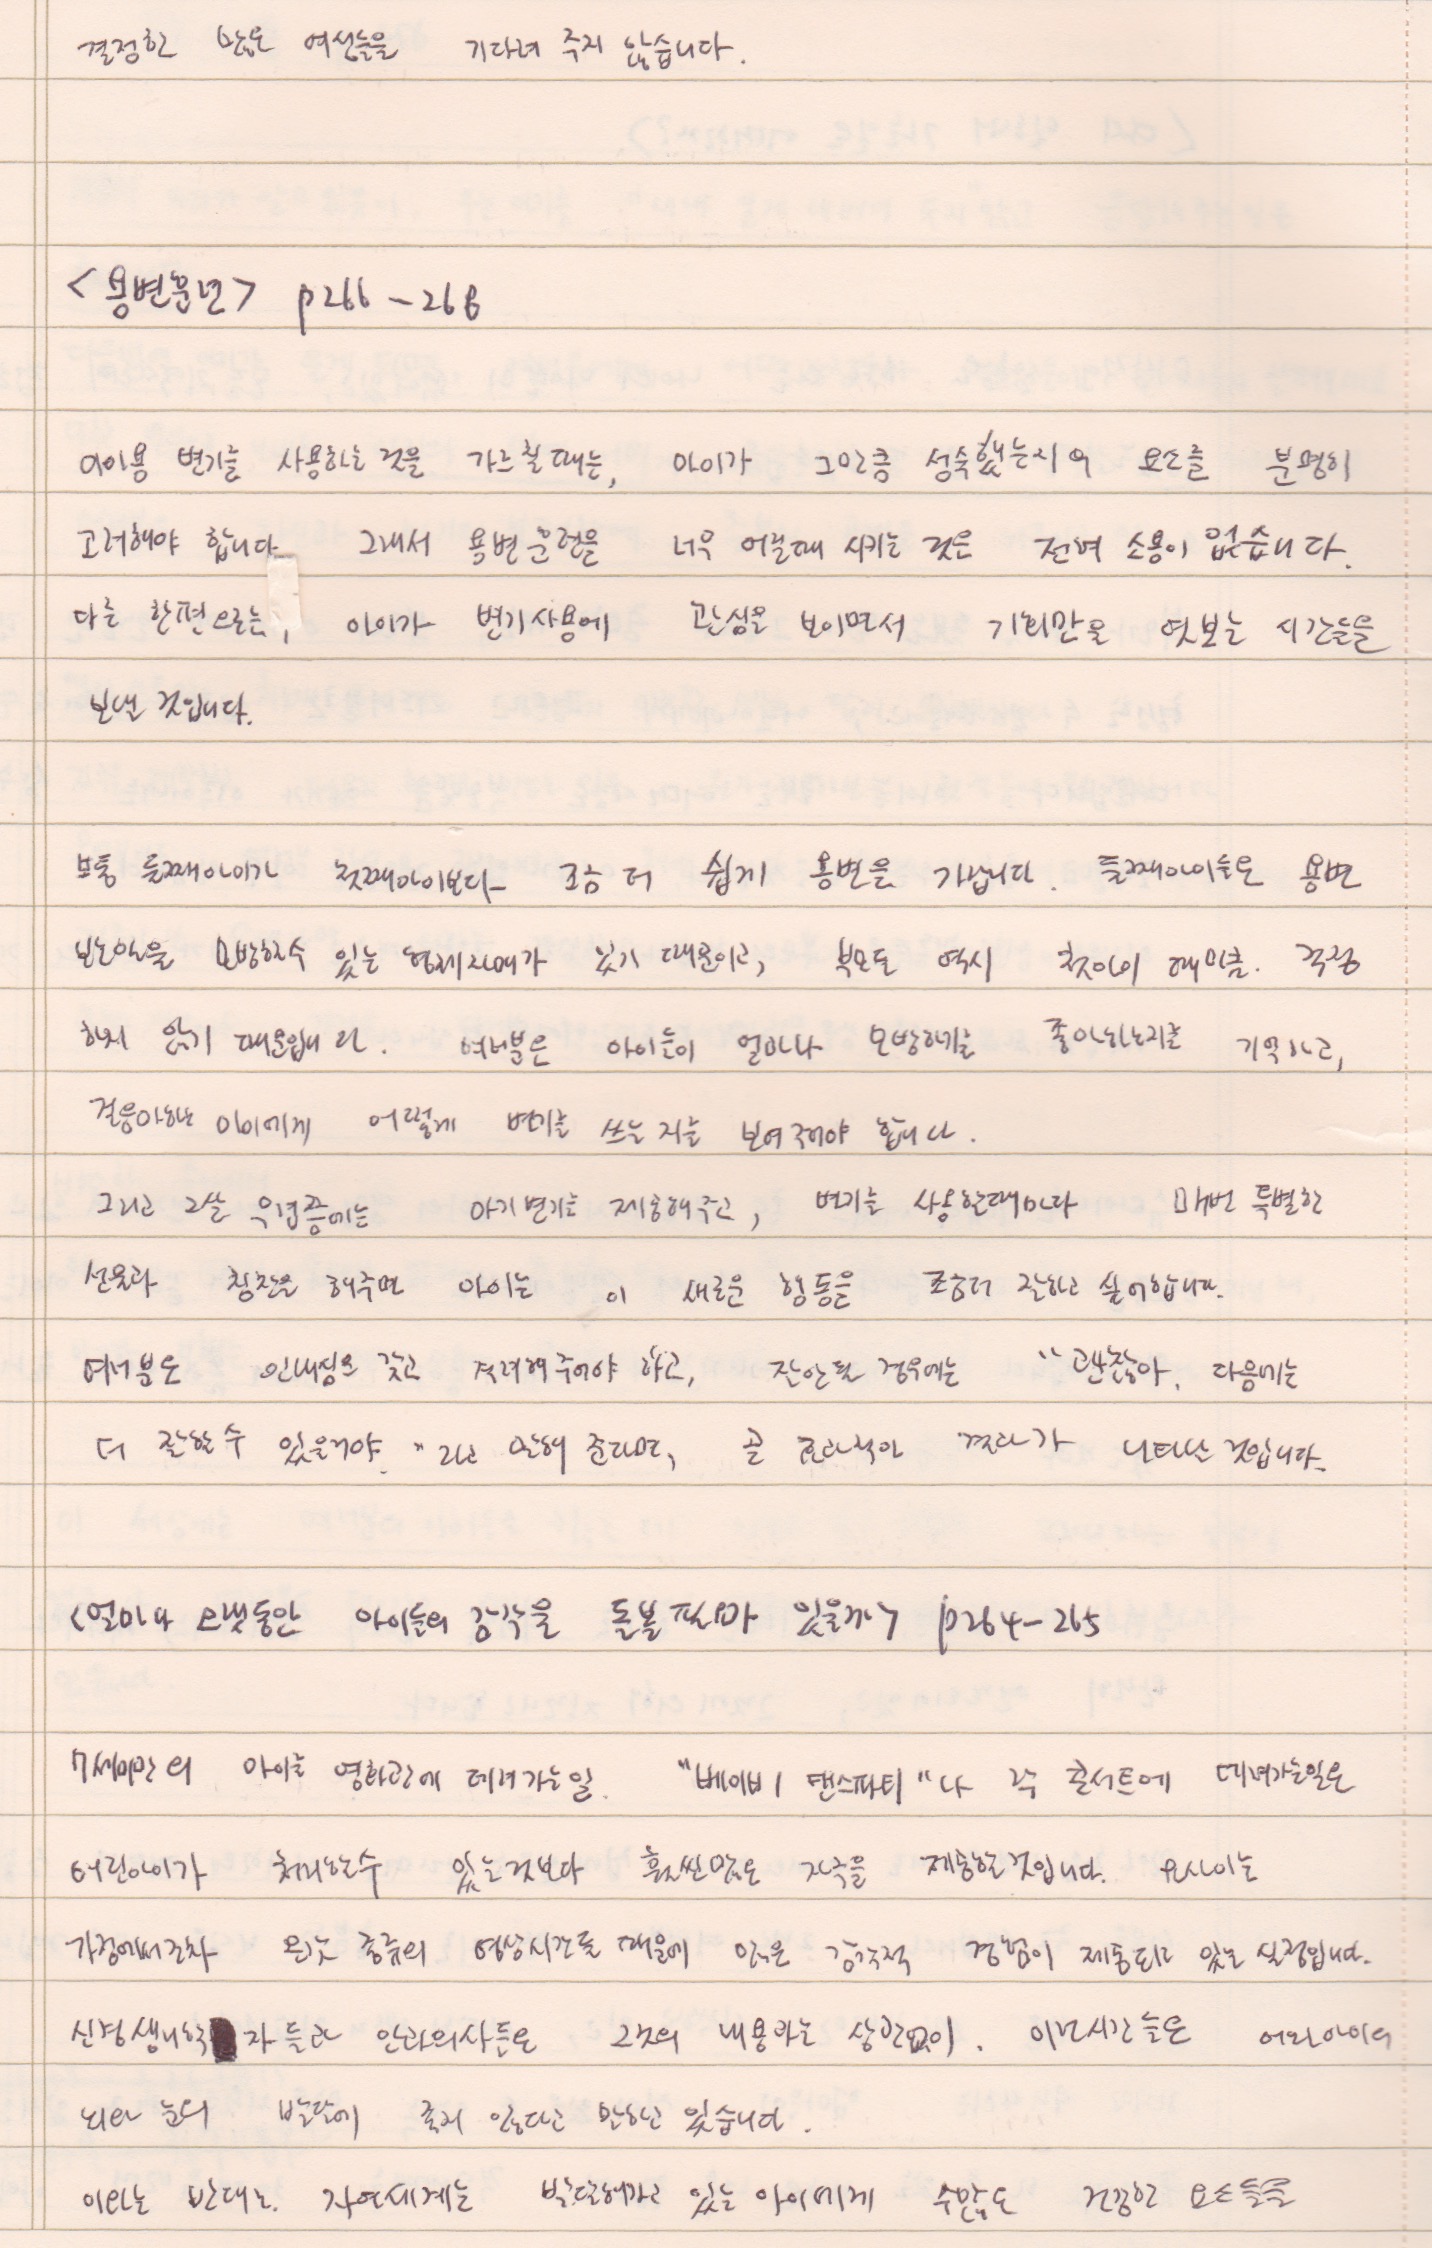 결정한 많은 여선들을 기다려 주지 않습니다.
<용변훈련> p266-268
아이용 변기를 사용하는 것을 가르칠때는, 아이가 그만큼 성숙했는지의 요소를 분명히
고려해야 합니다. 그래서 용변훈련을 너무 어릴때 시키는 것은 전혀 소용이 없습니다.
다른 한편으로는, 아이가 변기사용에 관심을 보이면서 기회만을 엿보는 시간들을
보낼 것입니다.
보통 둘째아이가 첫째아이보다 조금 더 쉽게 용변을 가립니다. 둘째아이들은 용변
보는일을 모방할수 있는 형제자매가 있기 때문이고, 부모도 역시 첫아이 때만큼 걱정
하지 않기 때문입니다. 여러분은 아이들이 얼마나 모방하기를 좋아하는지를 기억하고,
걸음마하는 아이에게 어떻게 변기를 쓰는 지를 보여주어야 합니다.
그리고 2살 무렵쯤에는 아기변기를 제공해주고, 변기를 사용할때마다 매번 특별한
선물과 칭찬을 해주면 아이는 이 새로운 행동을 조금더 잘하고 싶어합니다.
여러분은 인내심을 갖고 격려해주어야 하고, 잘안될 경우에는 "괜찮아. 다음에는
더 잘할수 있을거야." 라고 말해 준다면, 곧 효과적인 결과가 나타날 것입니다.
<얼마나 오랫동안 아이들의 감각을 돌볼 필요가 있을까> p264-265
7세미만의 아이를 영화관에 데려가는일. "베이비 댄스파티"나 락 콘서트에 데려가는일은
어린아이가 처리할수 있는것보다 훨씬많은 자극을 제공할것입니다. 요사이는
가정에서조차 온갖 종류의 영상시간들 때문에 많은 감각적 경험이 제공되고 있는 실정입니다.
신경생리학자들과 안과의사들은 그것의 내용과는 상관없이. 이런시간들은 어린아이의
뇌와 눈의 발달에 좋지 않다고 말하고 있습니다.
이와는 반대로. 자연세계는 발달해가고 있는 아이에게 수많은 건강한 요소들을